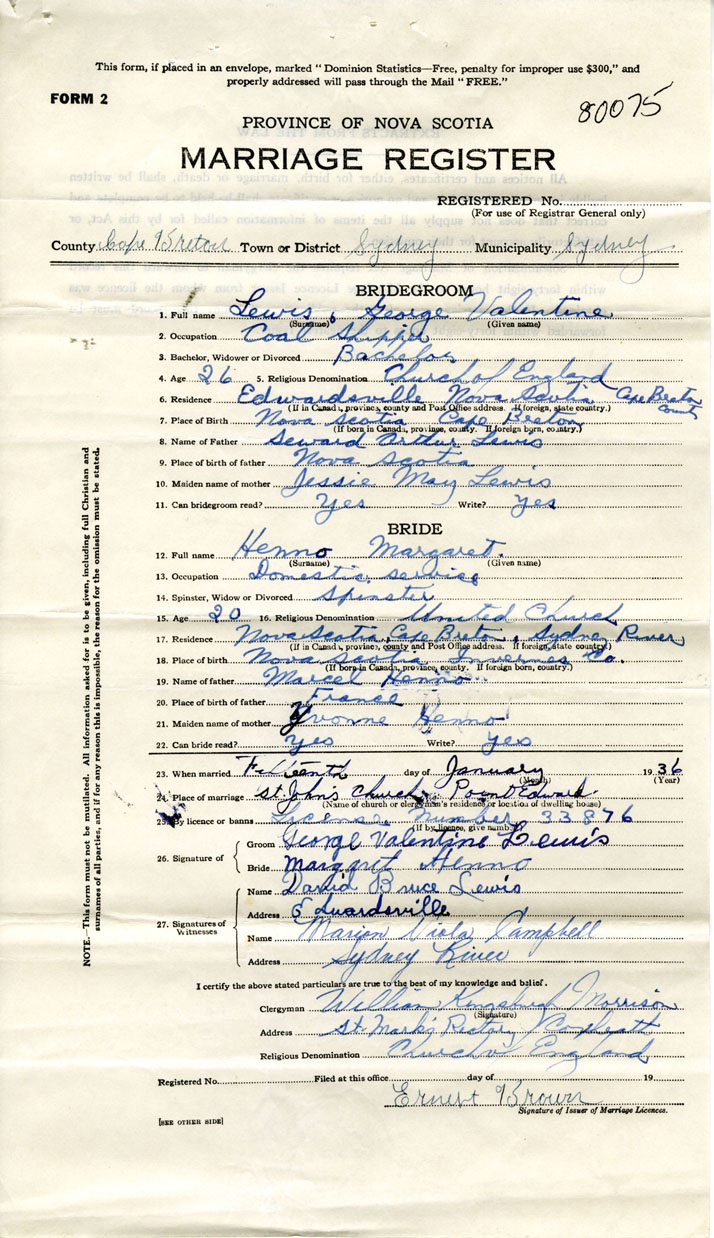 This form, if placed in an envelope, marked "Dominion Statistics—Free, penalty for improper use $300," and
properly addressed will pass through the Mail "FREE."
FORM 2
80075
PROVINCE OF NOVA SCOTIA
MARRIAGE REGISTER
REGISTERED No.
(For use of Registrar General only)
County Cape Breton Town or District Sydney Municipality Sydney
BRIDEGROOM
1. Full name Lewis, George Valentine
(Surname) (Given name)
2. Occupation Coal Shipper
3. Bachelor, Widower or Divorced Bachelor
4. Age 26 5. Religious Denomination Church of England
6. Residence Edwardsville Nova Scotia Cape Breton County
(If in Canada, province, county and Post Office address. If foreign, state country.)
7. Place of Birth Nova Scotia Cape Breton
(If born in Canada, province, county. If foreign born, country.)
8. Name of Father Seward Arthur Lewis
9. Place of birth of father Nova Scotia
10. Maiden name of mother Jessie May Lewis
11. Can bridegroom read? Yes Write? Yes
BRIDE
12. Full name Henno Margaret.
(Surname) (Given name)
13. Occupation Domestic service
14. Spinster, Widow or Divorced Spinster
15. Age 20 16. Religious Denomination United Church
17. Residence Nova Scotia, Cape Breton, Sydney River
(If in Canada, province, county and Post Office address. If foreign, state country.)
18. Place of birth Nova Scotia Invernes Co.
(If born in Canada, province, county. If foreign born, country.)
19. Name of father Marcel Henno
20. Place of birth of father France
21. Maiden name of mother Yvonne Henno
22. Can bride read? Yes Write? Yes
23. When married Fifteenth day of January 1936
(Month) (Year)
24. Place of marriage St. John's Church, Point Edward.
(Name of church or clergyman's residence or location of dwelling house)
25. By licence or banns License Number 33876
(If by licence, give number)
26. Signature of
Groom George Valentine Lewis
Bride Margaret Henno
27. Signatures of Witnesses
Name David Bruce Lewis
Address Edwardsville
Name Marion Viola Campbell
Address Sydney River
I certify the above stated particulars are true to the best of my knowledge and belief.
Clergyman William Kingsburgh Morrison
(Signature)
Address St. Mark's Rectory, Coxheath
Religious Denomination Church of England
Registered No. Filed at this office day of 19
Ernest Brown
Signature of Issuer of Marriage Licences.
[SEE OTHER SIDE]
NOTE.—This form must not be mutilated. All information asked for is to be given, including full Christian and
surnames of all parties, and if for any reason this is impossible, the reason for the omission must be stated.